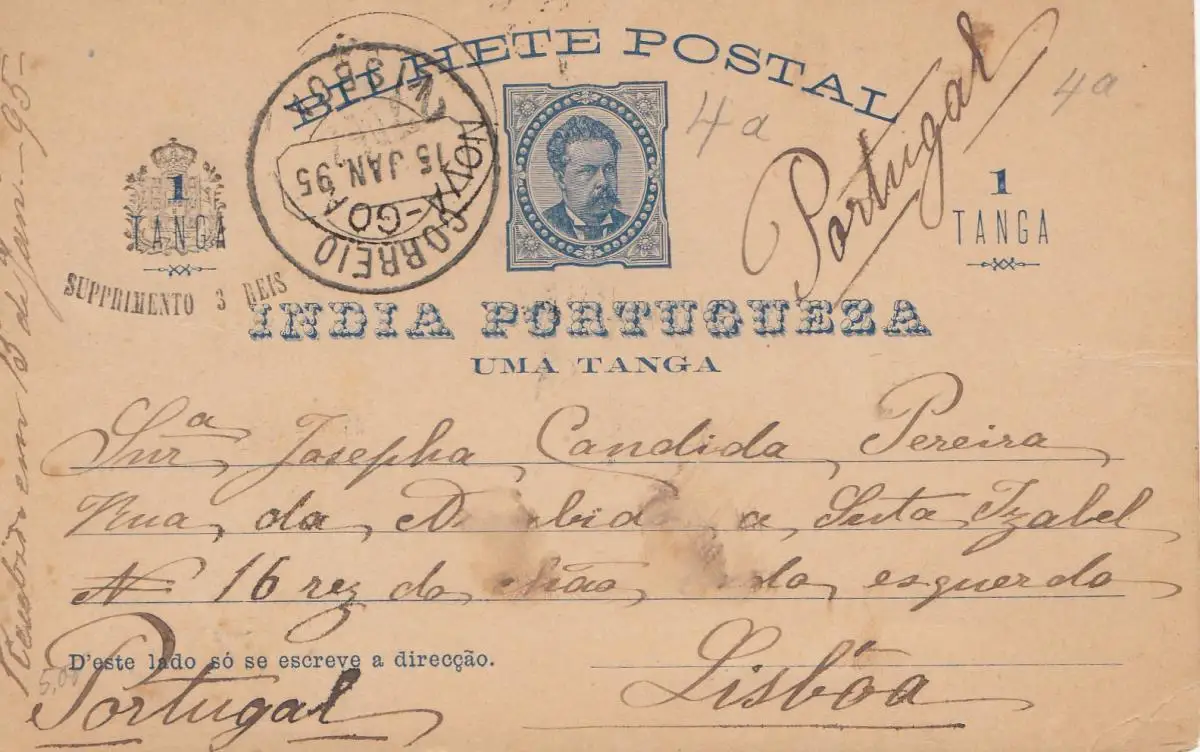 BILHETE POSTAL
NOVA-GOA
15 JAN. 95
CORREIO
4a
Portugal
4a
1
TANGA
1
TANGA
SUPPRIMENTO 3 REIS
INDIA PORTUGUEZA
UMA TANGA
Snrª Josepha Candida Pereira
Rua da a Snta Izabel
Nº 16 rez do chão esquerdo
Lisbôa
D'este lado só se escreve a direcção.
Portugal
5,00
em 15 de Jan.º - 95 -